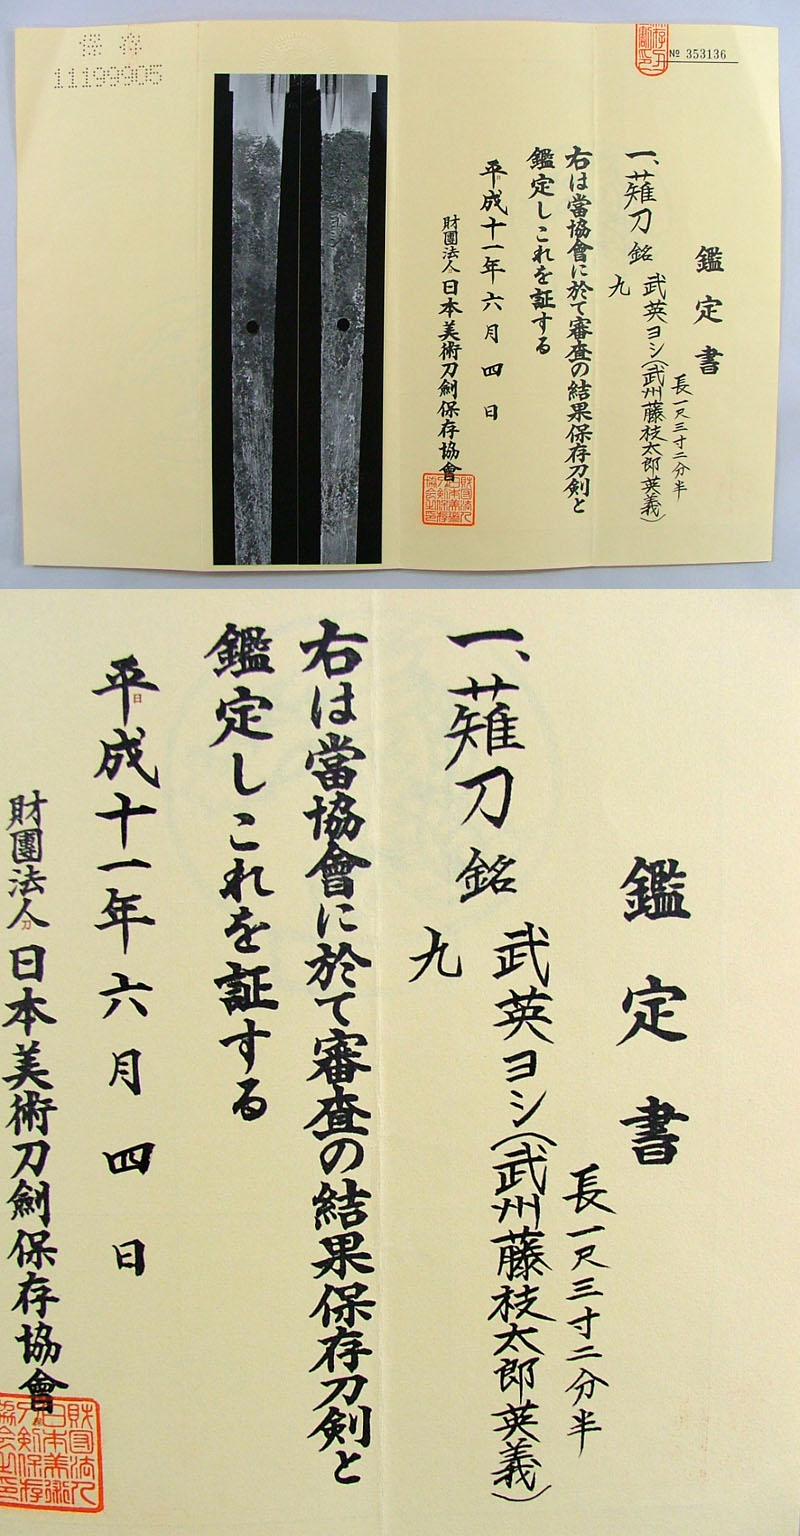 保存
11199905
№ 353136
鑑定書
長一尺三寸二分半
一、薙刀 銘 武英ヨシ(武州藤枝太郎英義)
九
右は當協會に於て審査の結果保存刀剣と
鑑定しこれを証する
平成十一年六月四日
財團法人日本美術刀劍保存協會
鑑定書
長一尺三寸二分半
一、薙刀 銘 武英ヨシ(武州藤枝太郎英義)
九
右は當協會に於て審査の結果保存刀剣と
鑑定しこれを証する
平成十一年六月四日
財團法人日本美術刀劍保存協會